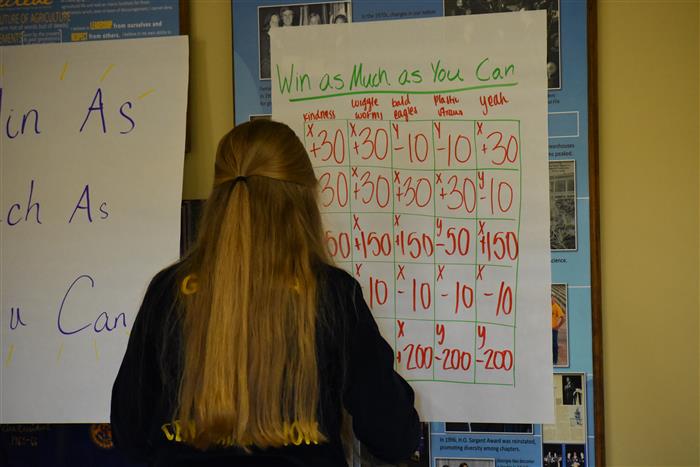 FUTURE OF AGRICULTURE
LEADERSHIP from ourselves and
RESPECT from others.
in As
ch As
u Can
Win as Much as You Can
kindness wiggle worms bald eagles plastic straws yeah
x +30 x +30 y -10 y -10 x +30
30 x +30 x +30 x +30 y -10
50 x +150 x +150 y -50 x +150
x 10 x -10 x -10 x -10
x +200 y -200 y -200
In the 1970s, changes in our nation
In 1996, H.O. Sargent Award was reinstated,
promoting diversity among chapters.